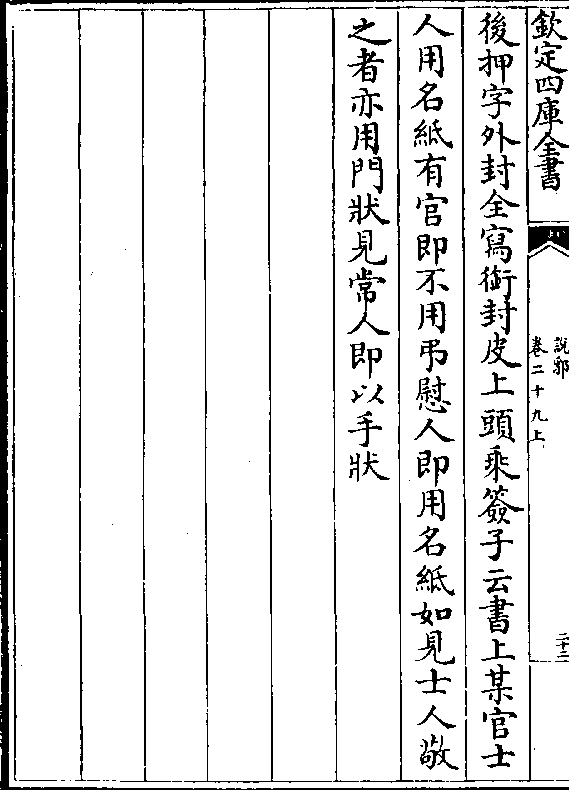 欽定四庫全書
說郛
卷二十九上
二十二
後押字外封全寫銜封皮上頭乘簽子云書上某官士
人用名紙有官即不用弔慰人即用名紙如見士人敬
之者亦用門狀見常人即以手狀